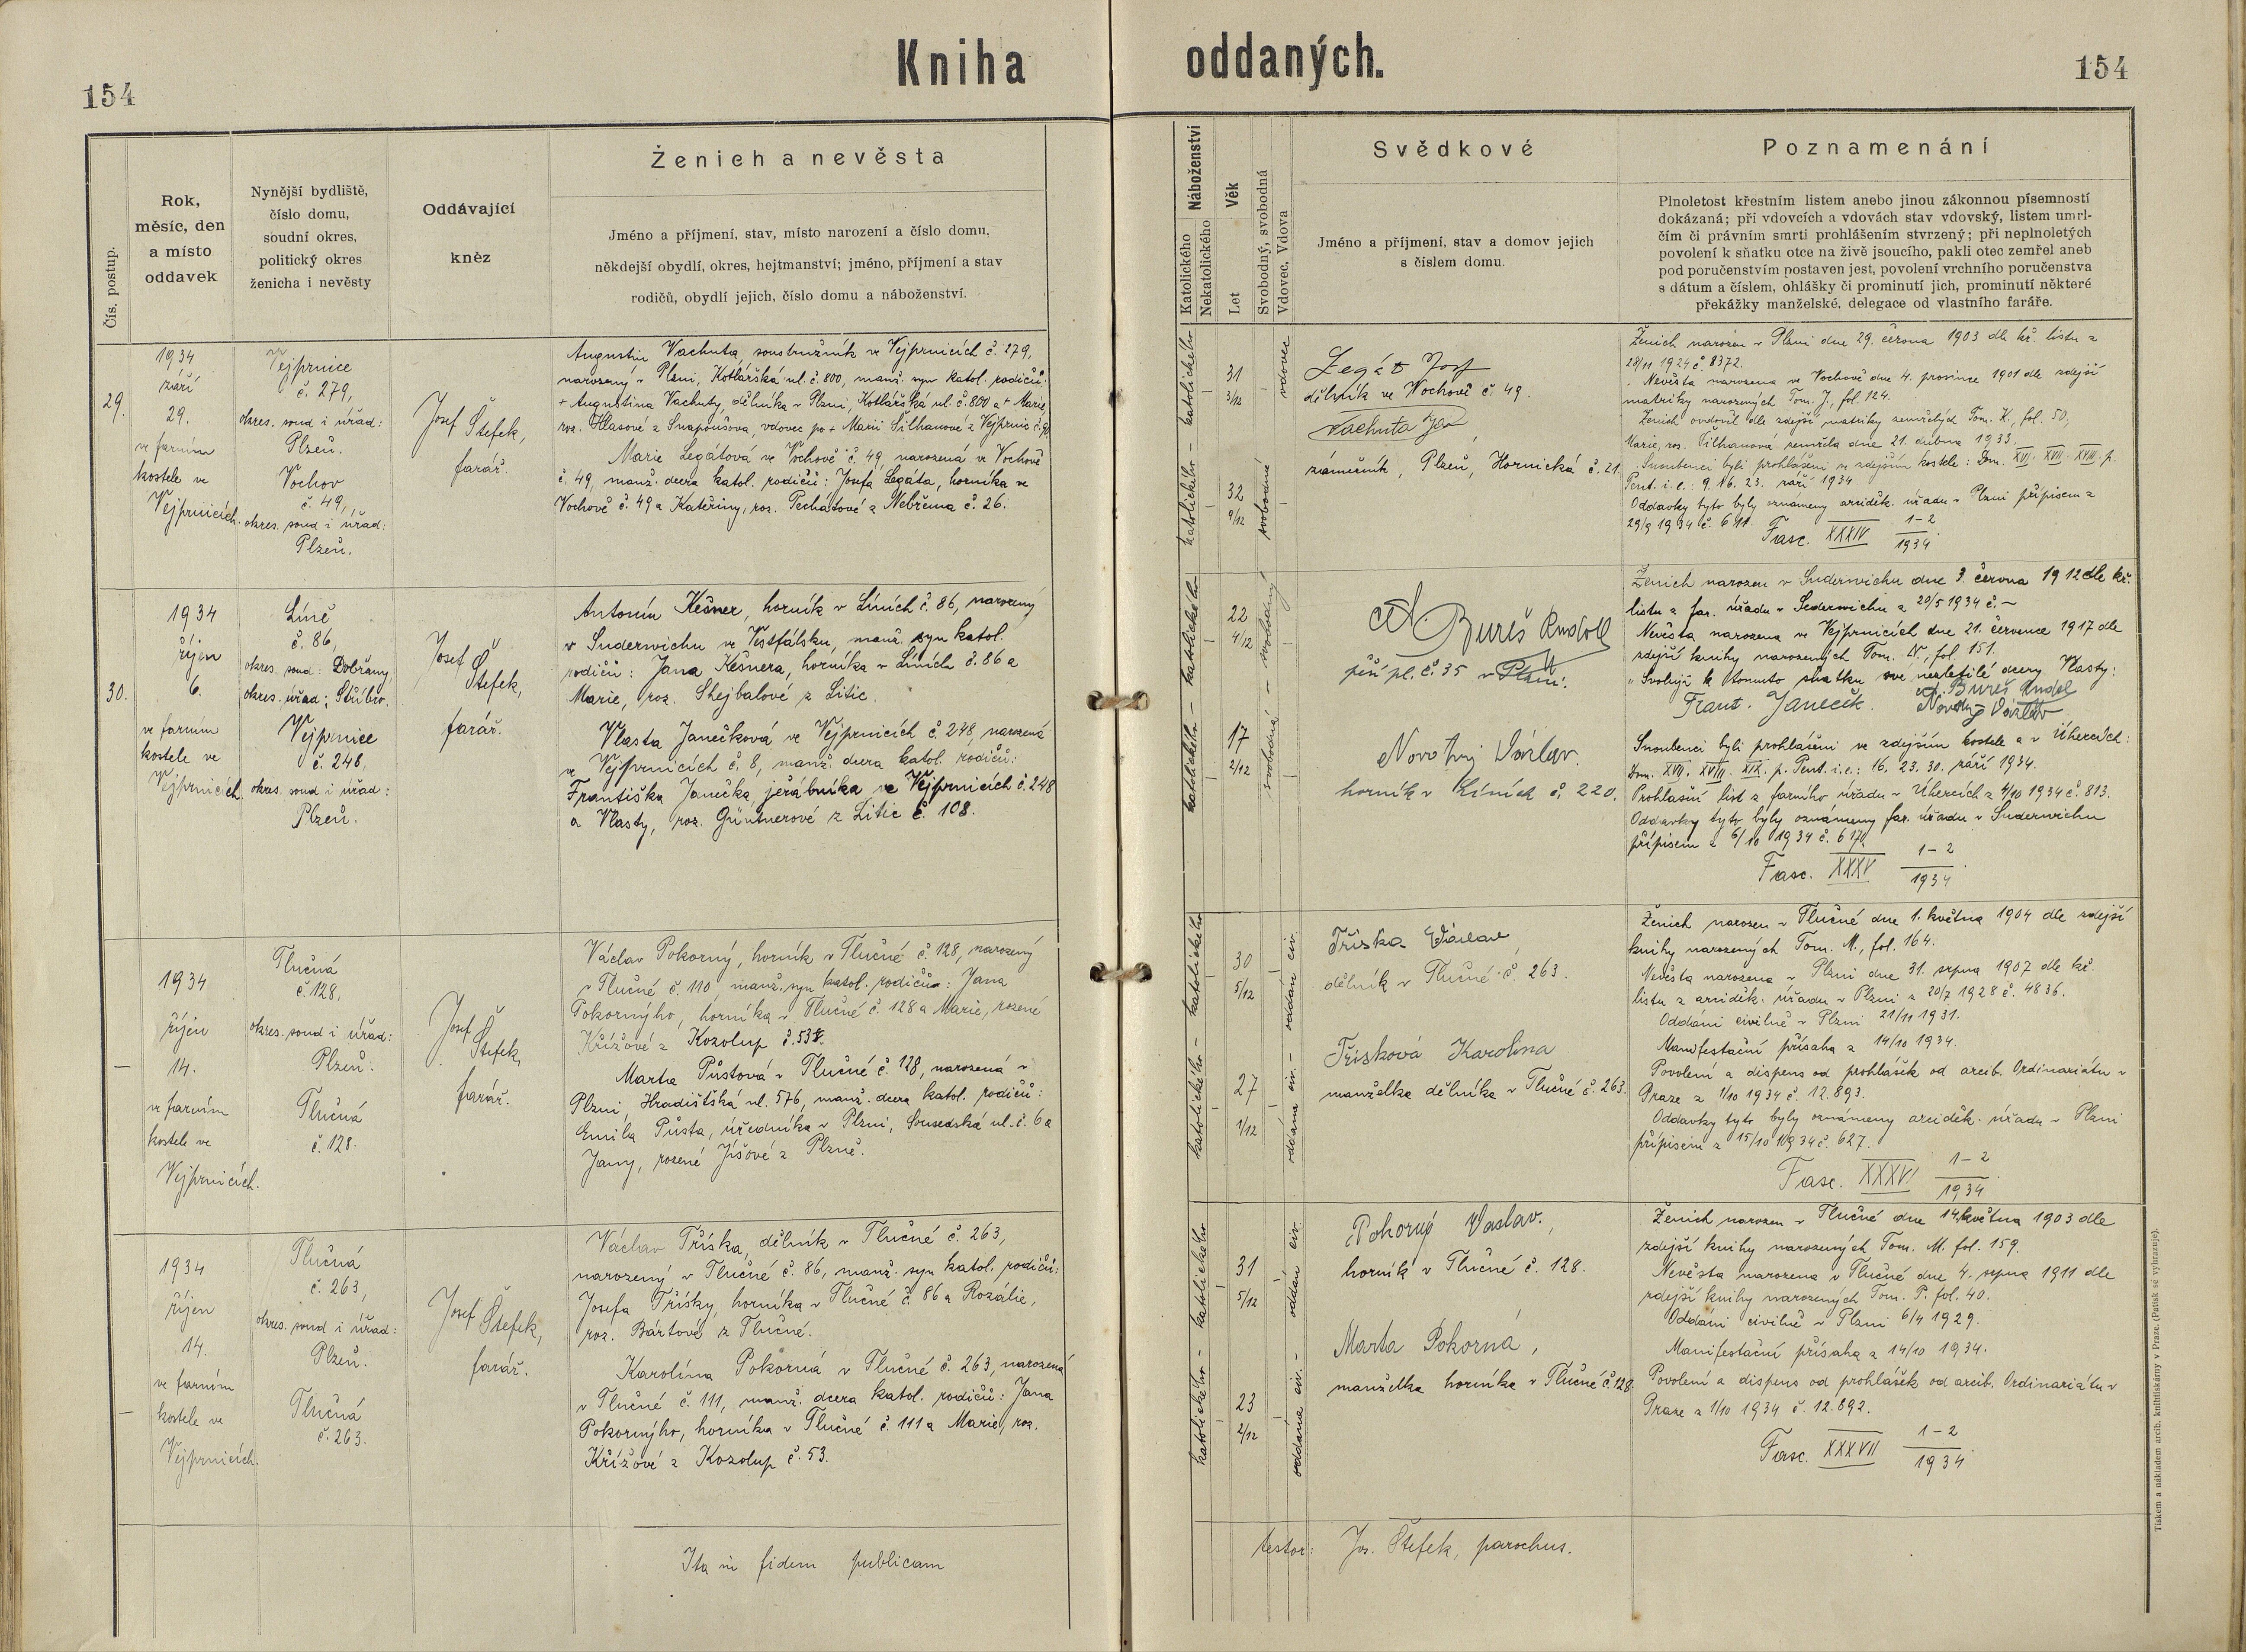 Kniha oddaných.
154
154
Čís. postup.
Rok,
měsíc, den
a místo
oddavek
Nynější bydliště,
číslo domu,
soudní okres,
politický okres
ženicha i nevěsty
Oddávající
kněz
Ženich a nevěsta
Jméno a příjmení, stav, místo narození a číslo domu,
někdejší obydlí, okres, hejtmanství; jméno, příjmení a stav
rodičů, obydlí jejich, číslo domu a náboženství.
Náboženství
Katolického
Nekatolického
Věk
Let
Svobodný, svobodná
Vdovec, Vdova
Svědkové
Jméno a příjmení, stav a domov jejich
s číslem domu.
Poznamenání
Plnoletost křestním listem anebo jinou zákonnou písemností
dokázaná; při vdovcích a vdovách stav vdovský, listem umrl-
čím či právním smrti prohlášením stvrzený; při neplnoletých
povolení k sňatku otce na živě jsoucího, pakli otec zemřel aneb
pod poručenstvím postaven jest, povolení vrchního poručenstva
s dátum a číslem, ohlášky či prominutí jich, prominutí některé
překážky manželské, delegace od vlastního faráře.
29.
1934
září
29.
ve farním
kostele ve
Vejprnicích.
Vejprnice
č. 279,
okres. soud i úřad:
Plzeň.
Vochov
č. 49,
okres. soud i úřad:
Plzeň.
Josef Štefek,
farář.
Augustin Vachuta, soustružník ve Vejprnicích č. 279,
narozený v Plzni, Kotlářská ul. č. 800, manž. syn katol. rodičů:
+ Augustina Vachuty, dělníka v Plzni, Kotlářská ul. č. 800 a + Marie,
roz. Hlasové z Snopoušova, vdovec po + Marii Šilhanové z Vejprnic
Marie Legátová ve Vochově č. 49, narozená ve Vochově
č. 49, manž. dcera katol. rodičů: Josefa Legáta, horníka ve
Vochově č. 49 a Kateřiny, roz. Pechátové z Nebřema č. 26.
katolického – katolického
31
3/12
32
9/12
vdovec
svobodná
Legát Josf
dělník ve Vochově č. 49.
Vachuta Jan
zámečník, Plzeň, Hornická č. 21.
Ženich narozen v Plzni dne 29. června 1903 dle kř. listu z
28/11 1924 č. 8372.
Nevěsta narozena ve Vochově dne 4. prosince 1901 dle zdejší
matriky narozených Tom. J., fol. 124.
Ženich ovdověl dle zdejší matriky zemřelých Tom. K., fol. 50,
Marie, roz. Šilhanová zemřela dne 21. dubna 1933.
Snoubenci byli prohlášeni ve zdejším kostele: Dom. XVI. XVII. XVIII. p.
Pent. i. e.: 9. 16. 23. září 1934
Oddavky tyto byly oznámeny arciděk. úřadu v Plzni přípisem z
29/9 1934 č. 611.
Fasc. XXXIV 1-2/1934
30.
1934
říjen
6.
ve farním
kostele ve
Vejprnicích.
Líně
č. 86,
okres. soud: Dobřany,
okres. úřad: Stříbro.
Vejprnice
č. 248,
okres. soud i úřad:
Plzeň.
Josef
Štefek,
farář.
Antonín Kešner, horník v Líních č. 86, narozený
v Suderwichu ve Vestfálsku, manž. syn katol.
rodičů: Jana Kešnera, horníka v Líních č. 86 a
Marie, roz. Shejbalové z Litic.
Vlasta Janečková ve Vejprnicích č. 248, narozená
ve Vejprnicích č. 8, manž. dcera katol. rodičů:
Františka Janečka, jeřábníka ve Vejprnicích č. 248
a Vlasty, roz. Güntnerové z Litic č. 108.
katolického – katolického
22
4/12
17
2/12
svobodná – svobodný
Bureš Rudolf
pěší pl. č. 35 v Plzni.
Novotný Václav.
horník v Líních č. 220.
Ženich narozen v Suderwichu dne 3. června 1912 dle kř.
listu z far. úřadu v Suderwichu z 20/5 1934 č. –
Nevěsta narozena ve Vejprnicích dne 21. července 1917 dle
zdejší knihy narozených Tom. N., fol. 151.
"Svoluji k tomuto sňatku své nezletilé dcery Vlasty:
Frant. Janeček. Bureš Rudolf
Novotný Václav
Snoubenci byli prohlášeni ve zdejším kostele a v Úhercích:
Dom. XVII. XVIII. XIX. p. Pent. i. e.: 16. 23. 30. září 1934.
Prohlašní list z farního úřadu v Úhercích z 4/10 1934 č. 813.
Oddavky tyto byly oznámeny far. úřadu v Suderwichu
přípisem z 6/10 1934 č. 617.
Fasc. XXXV 1-2/1934.
–
1934
říjen
14.
ve farním
kostele ve
Vejprnicích.
Tlučná
č. 128,
okres. soud i úřad:
Plzeň.
Tlučná
č. 128.
Josef
Štefek,
farář.
Václav Pokorný, horník v Tlučné č. 128, narozený
v Tlučné č. 110, manž. syn katol. rodičů: Jana
Pokorného, horníka v Tlučné č. 128 a Marie, rozené
Křížové z Kozolup č. 53.
Marta Půstová v Tlučné č. 128, narozená v
Plzni, Hradištská ul. 576, manž. dcera katol. rodičů:
Emila Půsta, úředníka v Plzni, Sousedská ul. č. 6 a
Jany, rozené Jíšové z Plzně.
katolického – katolického
30
5/12
27
1/12
oddána civ. – oddán civ.
Tříska Václav
dělník v Tlučné č. 263.
Třísková Karolina
manželka dělníka v Tlučné č. 263.
Ženich narozen v Tlučné dne 1. května 1904 dle zdejší
knihy narozených Tom. M., fol. 164.
Nevěsta narozena v Plzni dne 31. srpna 1907 dle kř.
listu z arciděk. úřadu v Plzni z 20/7 1928 č. 4836.
Oddáni civilně v Plzni 21/11 1931.
Manifestační přísaha z 14/10 1934.
Povolení a dispens od prohlášek od arcib. Ordinariátu v
Praze z 1/10 1934 č. 12.893.
Oddavky tyto byly oznámeny arciděk. úřadu v Plzni
přípisem z 15/10 1934 č. 627.
Fasc. XXXVI 1-2/1934
–
1934
říjen
14.
ve farním
kostele ve
Vejprnicích.
Tlučná
č. 263,
okres. soud i úřad:
Plzeň.
Tlučná
č. 263.
Josef Štefek,
farář.
Václav Tříska, dělník v Tlučné č. 263,
narozený v Tlučné č. 86, manž. syn katol. rodičů:
Josefa Třísky, horníka v Tlučné č. 86 a Rozálie,
roz. Bártové z Tlučné.
Karolína Pokorná v Tlučné č. 263, narozená
v Tlučné č. 111, manž. dcera katol. rodičů: Jana
Pokorného, horníka v Tlučné č. 111 a Marie, roz.
Křížové z Kozolup č. 53.
katolického – katolického
31
5/12
23
2/12
oddána civ. – oddán civ.
Pokorný Vaslav.,
horník v Tlučné č. 128.
Marta Pokorná,
manželka horníka v Tlučné č. 128.
Ženich narozen v Tlučné dne 14. května 1903 dle
zdejší knihy narozených Tom. M. fol. 159.
Nevěsta narozena v Tlučné dne 4. srpna 1911 dle
zdejší knihy narozených Tom. P. fol. 40.
Oddáni civilně v Plzni 6/4 1929.
Manifestační přísaha z 14/10 1934.
Povolení a dispens od prohlášek od arcib. Ordinariátu v
Praze z 1/10 1934 č. 12.892.
Fasc. XXXVII 1-2/1934.
Ita in fidem publicam
testor: Jos. Štefek, parochus.
Tiskem a nákladem arcib. knihtiskárny v Praze. (Patisk se vyhrazuje).